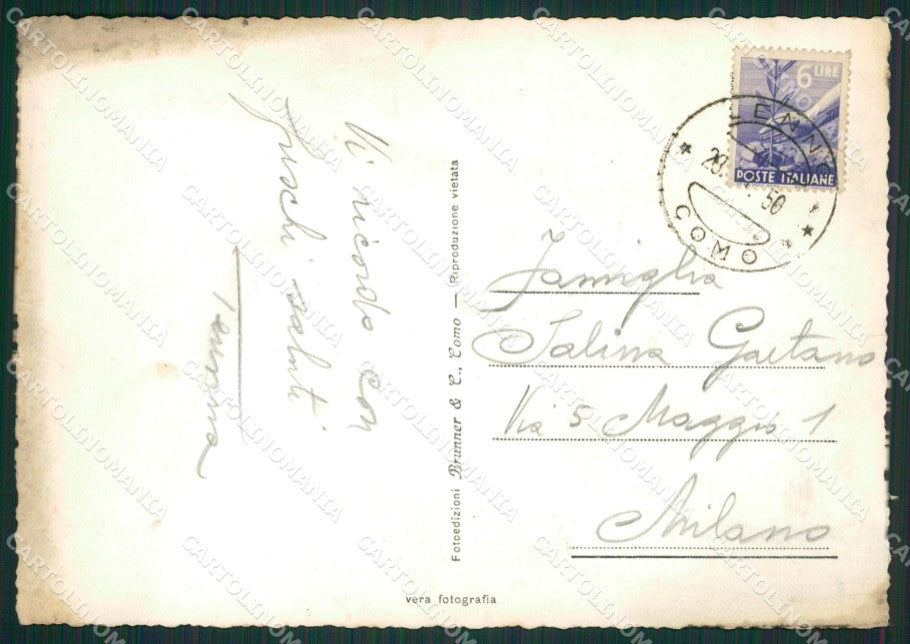 Vi ricordo con
Cari saluti
Fotoedizioni Brunner & C., Como — Riproduzione vietata
6 LIRE
POSTE ITALIANE
LENNO
50
COMO
Famiglia
Salina Gaetano
Via 5 Maggio 1
Milano
vera fotografia
CARTOLINOMANIA